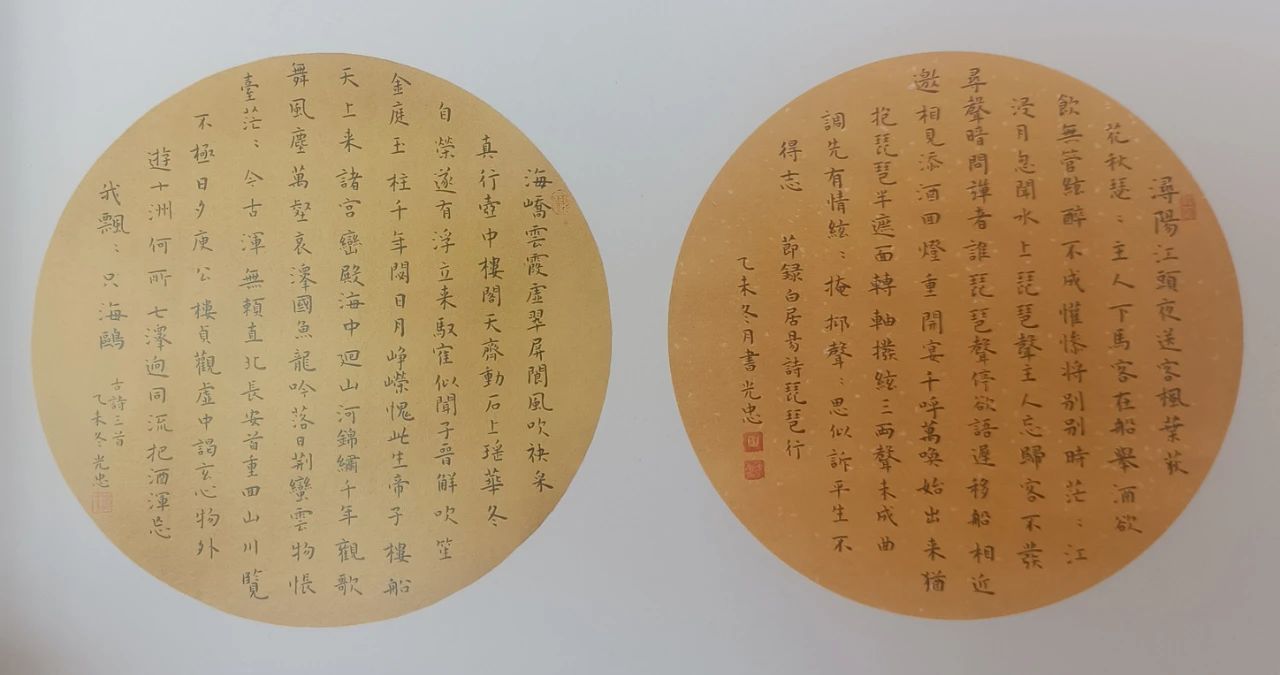 尋陽江頭夜送客楓葉荻
花秋瑟〻主人下馬客在船舉酒欲
飲無管絃醉不成懽慘将别别時茫〻江
浸月忽聞水上琵琶聲主人忘歸客不發
尋聲暗問彈者誰琵琶聲停欲語遲移船相近
邀相見添酒回燈重開宴千呼萬喚始出来猶
抱琵琶半遮面轉軸撥絃三兩聲未成曲
調先有情絃〻掩抑聲〻思似訴平生不
得志 節録白居易詩琵琶行
乙未冬月書光忠
海嶠雲霞虛翠屏閬風吹袂采
真行壺中樓閣天齊動石上瑶華冬
自榮遂有浮立来馭寉似聞子晉解吹笙
金庭玉柱千年閟日月崢嶸愧此生帝子樓船
天上来諸宮巒殿海中迴山河錦繡千年觀歌
舞風塵萬壑哀澤國魚龍吟落日荆蠻雲物悵
臺茫〻今古渾無賴直北長安首重回山川覽
不極日夕庾公樓貞觀虛中謁玄心物外
遊十洲何所七澤迥同流把酒渾忘
我飄〻只海鷗
古詩三首
乙未冬光忠